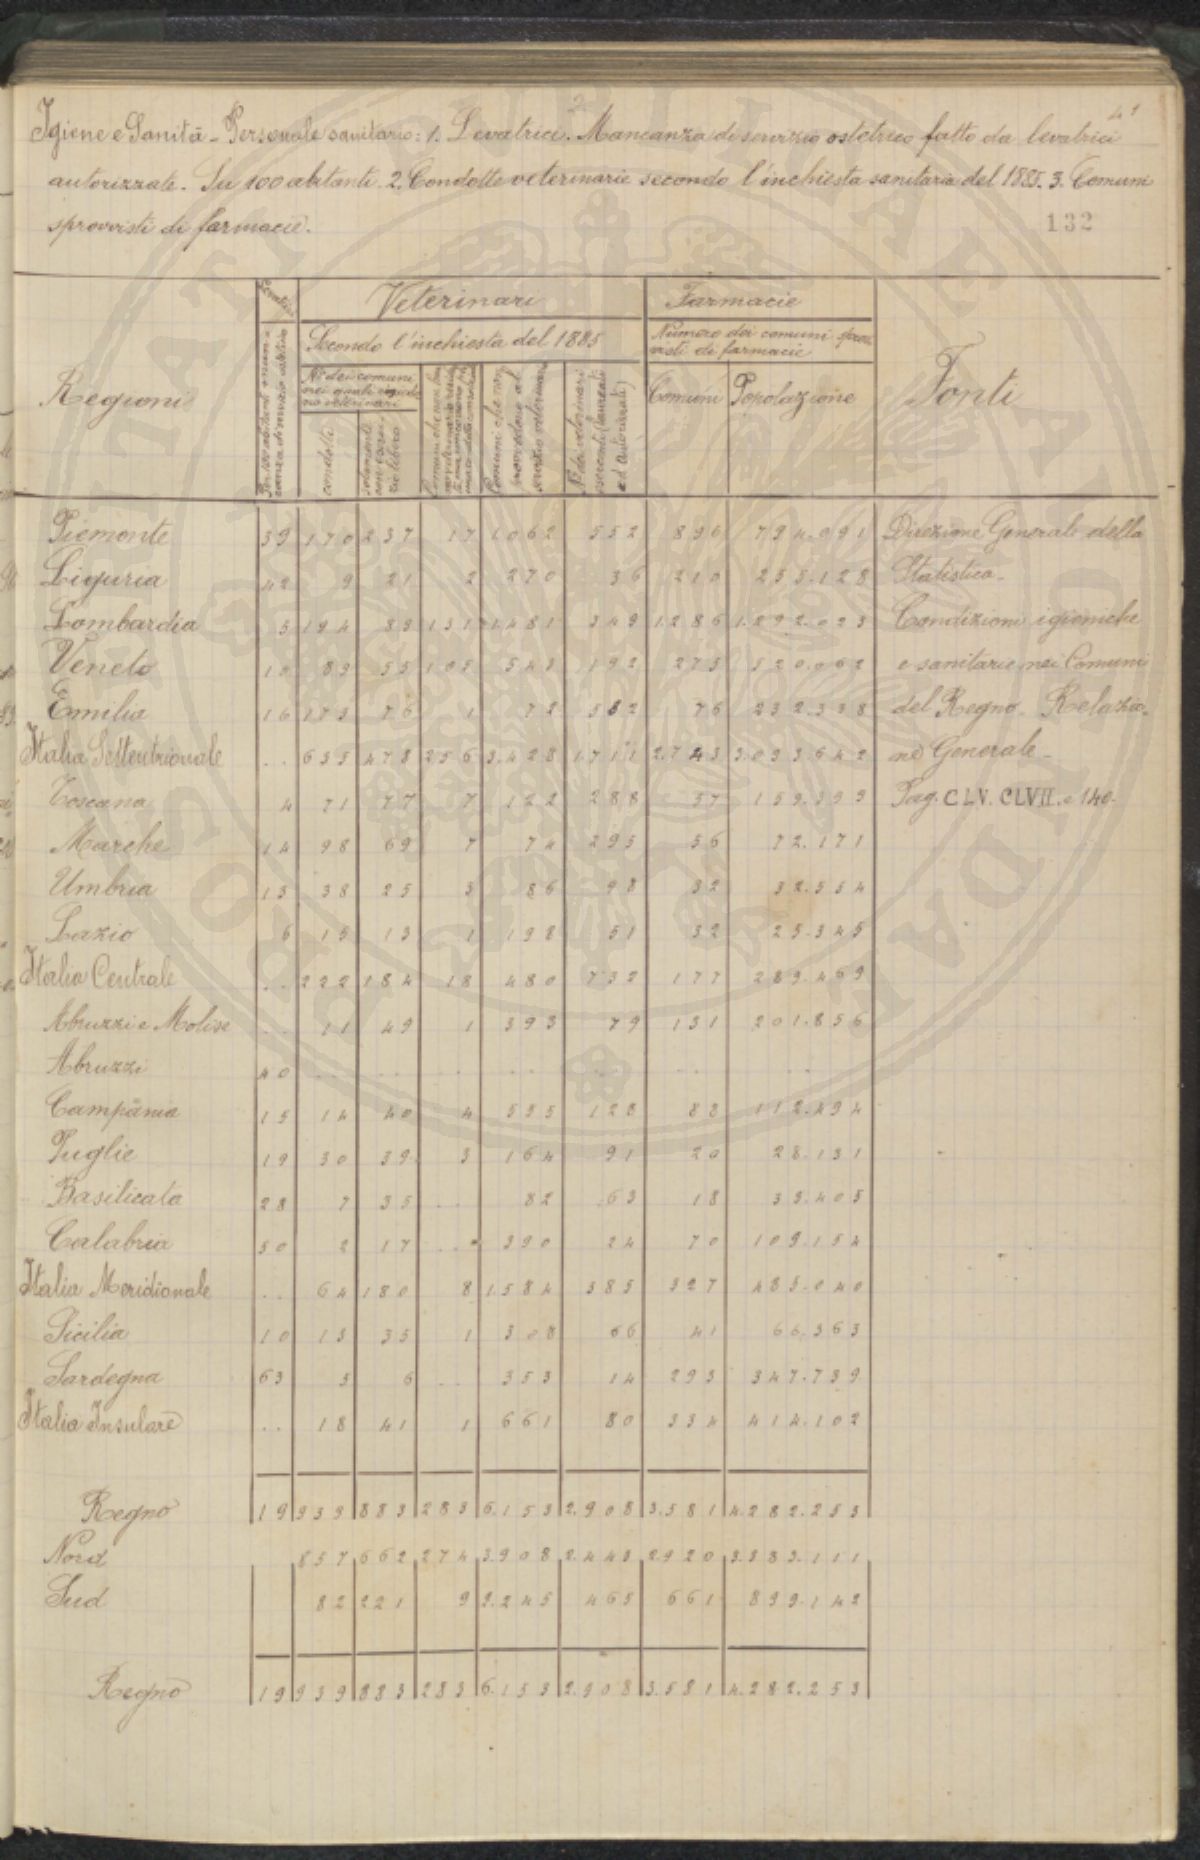 41
Igiene e Sanità - Personale sanitario: 1. Levatrici. Mancanza di servizio ostetrico fatto da levatrici
autorizzate. Su 100 abitanti. 2. Condotte veterinarie secondo l'inchiesta sanitaria del 1885. 3. Comuni
sprovvisti di farmacie.
132
Regioni
Levatrici
Veterinari
Secondo l'inchiesta del 1885
No dei comuni
nei quali
veterinari
condotti
solamente
libero
Comuni che non
provvedono al
servizio veterinario
No dei veterinari
esercenti (laureati
ed autorizzati)
Farmacie
Numero dei comuni sprov
visti di farmacie
Comuni Popolazione
Fonti
Piemonte 39 170 237 17 1.062 552 896 794.091 Direzione Generale della
Liguria 42 9 21 2 270 36 210 255.128 Statistica.
Lombardia 5 194 89 131 1.481 349 1.286 1.292.023 Condizioni igieniche
Veneto 10 89 55 105 543 192 275 520.062 e sanitarie nei Comuni
Emilia 16 173 76 1 72 582 76 232.338 del Regno. Relazio-
Italia Settentrionale .. 635 478 256 3.428 1.711 2.743 3.093.642 ne Generale -
Toscana 4 71 77 7 122 288 57 159.399 Pag. CLV. CLVII. e 140.
Marche 14 98 69 7 74 295 56 72.171
Umbria 13 38 25 3 86 98 32 32.554
Lazio 6 15 13 1 198 51 32 25.345
Italia Centrale .. 222 184 18 480 732 177 289.469
Abruzzi e Molise .. 11 49 1 393 79 131 201.856
Abruzzi 40 .. .. .. .. .. .. ..
Campania 15 14 40 4 555 128 88 112.494
Puglie 19 30 39 3 164 91 20 28.131
Basilicata 28 7 35 .. 82 63 18 33.405
Calabria 50 2 17 .. 390 24 70 109.154
Italia Meridionale .. 64 180 8 1.584 385 327 485.040
Sicilia 10 13 35 1 308 66 41 66.363
Sardegna 63 5 6 .. 353 14 293 347.739
Italia Insulare .. 18 41 1 661 80 334 414.102
Regno 19 939 883 283 6.153 2.908 3.581 4.282.253
Nord 857 662 274 3.908 2.443 2920 3.383.111
Sud 82 221 9 2.245 465 661 899.142
Regno 19 939 883 283 6.153 2.908 3.581 4.282.253